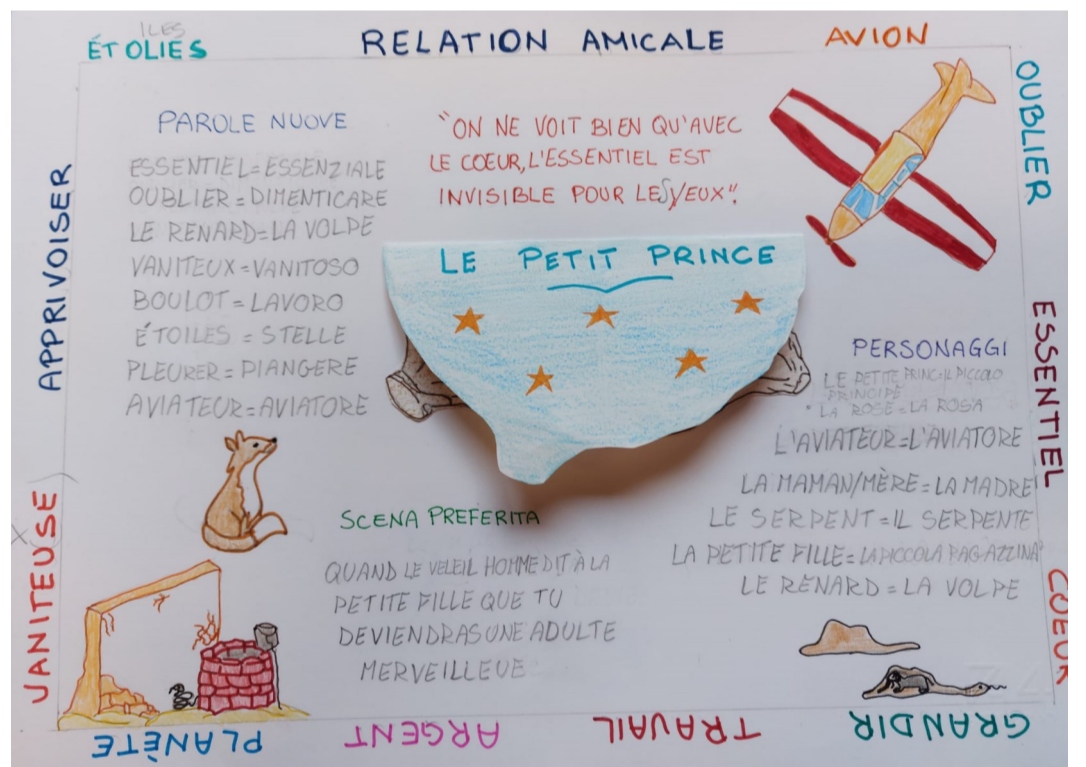 ILES
ÉTOLIES
RELATION AMICALE
AVION
OUBLIER
ESSENTIEL
COEUR
APPRIVOISER
VANITEUSE
PAROLE NUOVE
ESSENTIEL=ESSENZIALE
OUBLIER=DIMENTICARE
LE RENARD=LA VOLPE
VANITEUX=VANITOSO
BOULOT=LAVORO
ÉTOILES = STELLE
PLEURER=PIANGERE
AVIATEUR=AVIATORE
"ON NE VOIT BIEN QU'AVEC
LE COEUR, L'ESSENTIEL EST
INVISIBLE POUR LES YEUX".
LE PETIT PRINCE
PERSONAGGI
LE PETITE PRINC=IL PICCOLO
PRINCIPE
LA ROSE=LA ROSA
L'AVIATEUR=L'AVIATORE
LA MAMAN/MÈRE=LA MADRE
LE SERPENT=IL SERPENTE
LA PETITE FILLE=LA PICCOLA RAGAZZINA
LE RENARD=LA VOLPE
SCENA PREFERITA
QUAND LE VELEIL HOMME DIT À LA
PETITE FILLE QUE TU
DEVIENDRAS UNE ADULTE
MERVEILLEUE
PLANÈTE
ARGENT
TRAVAIL
GRANDIR